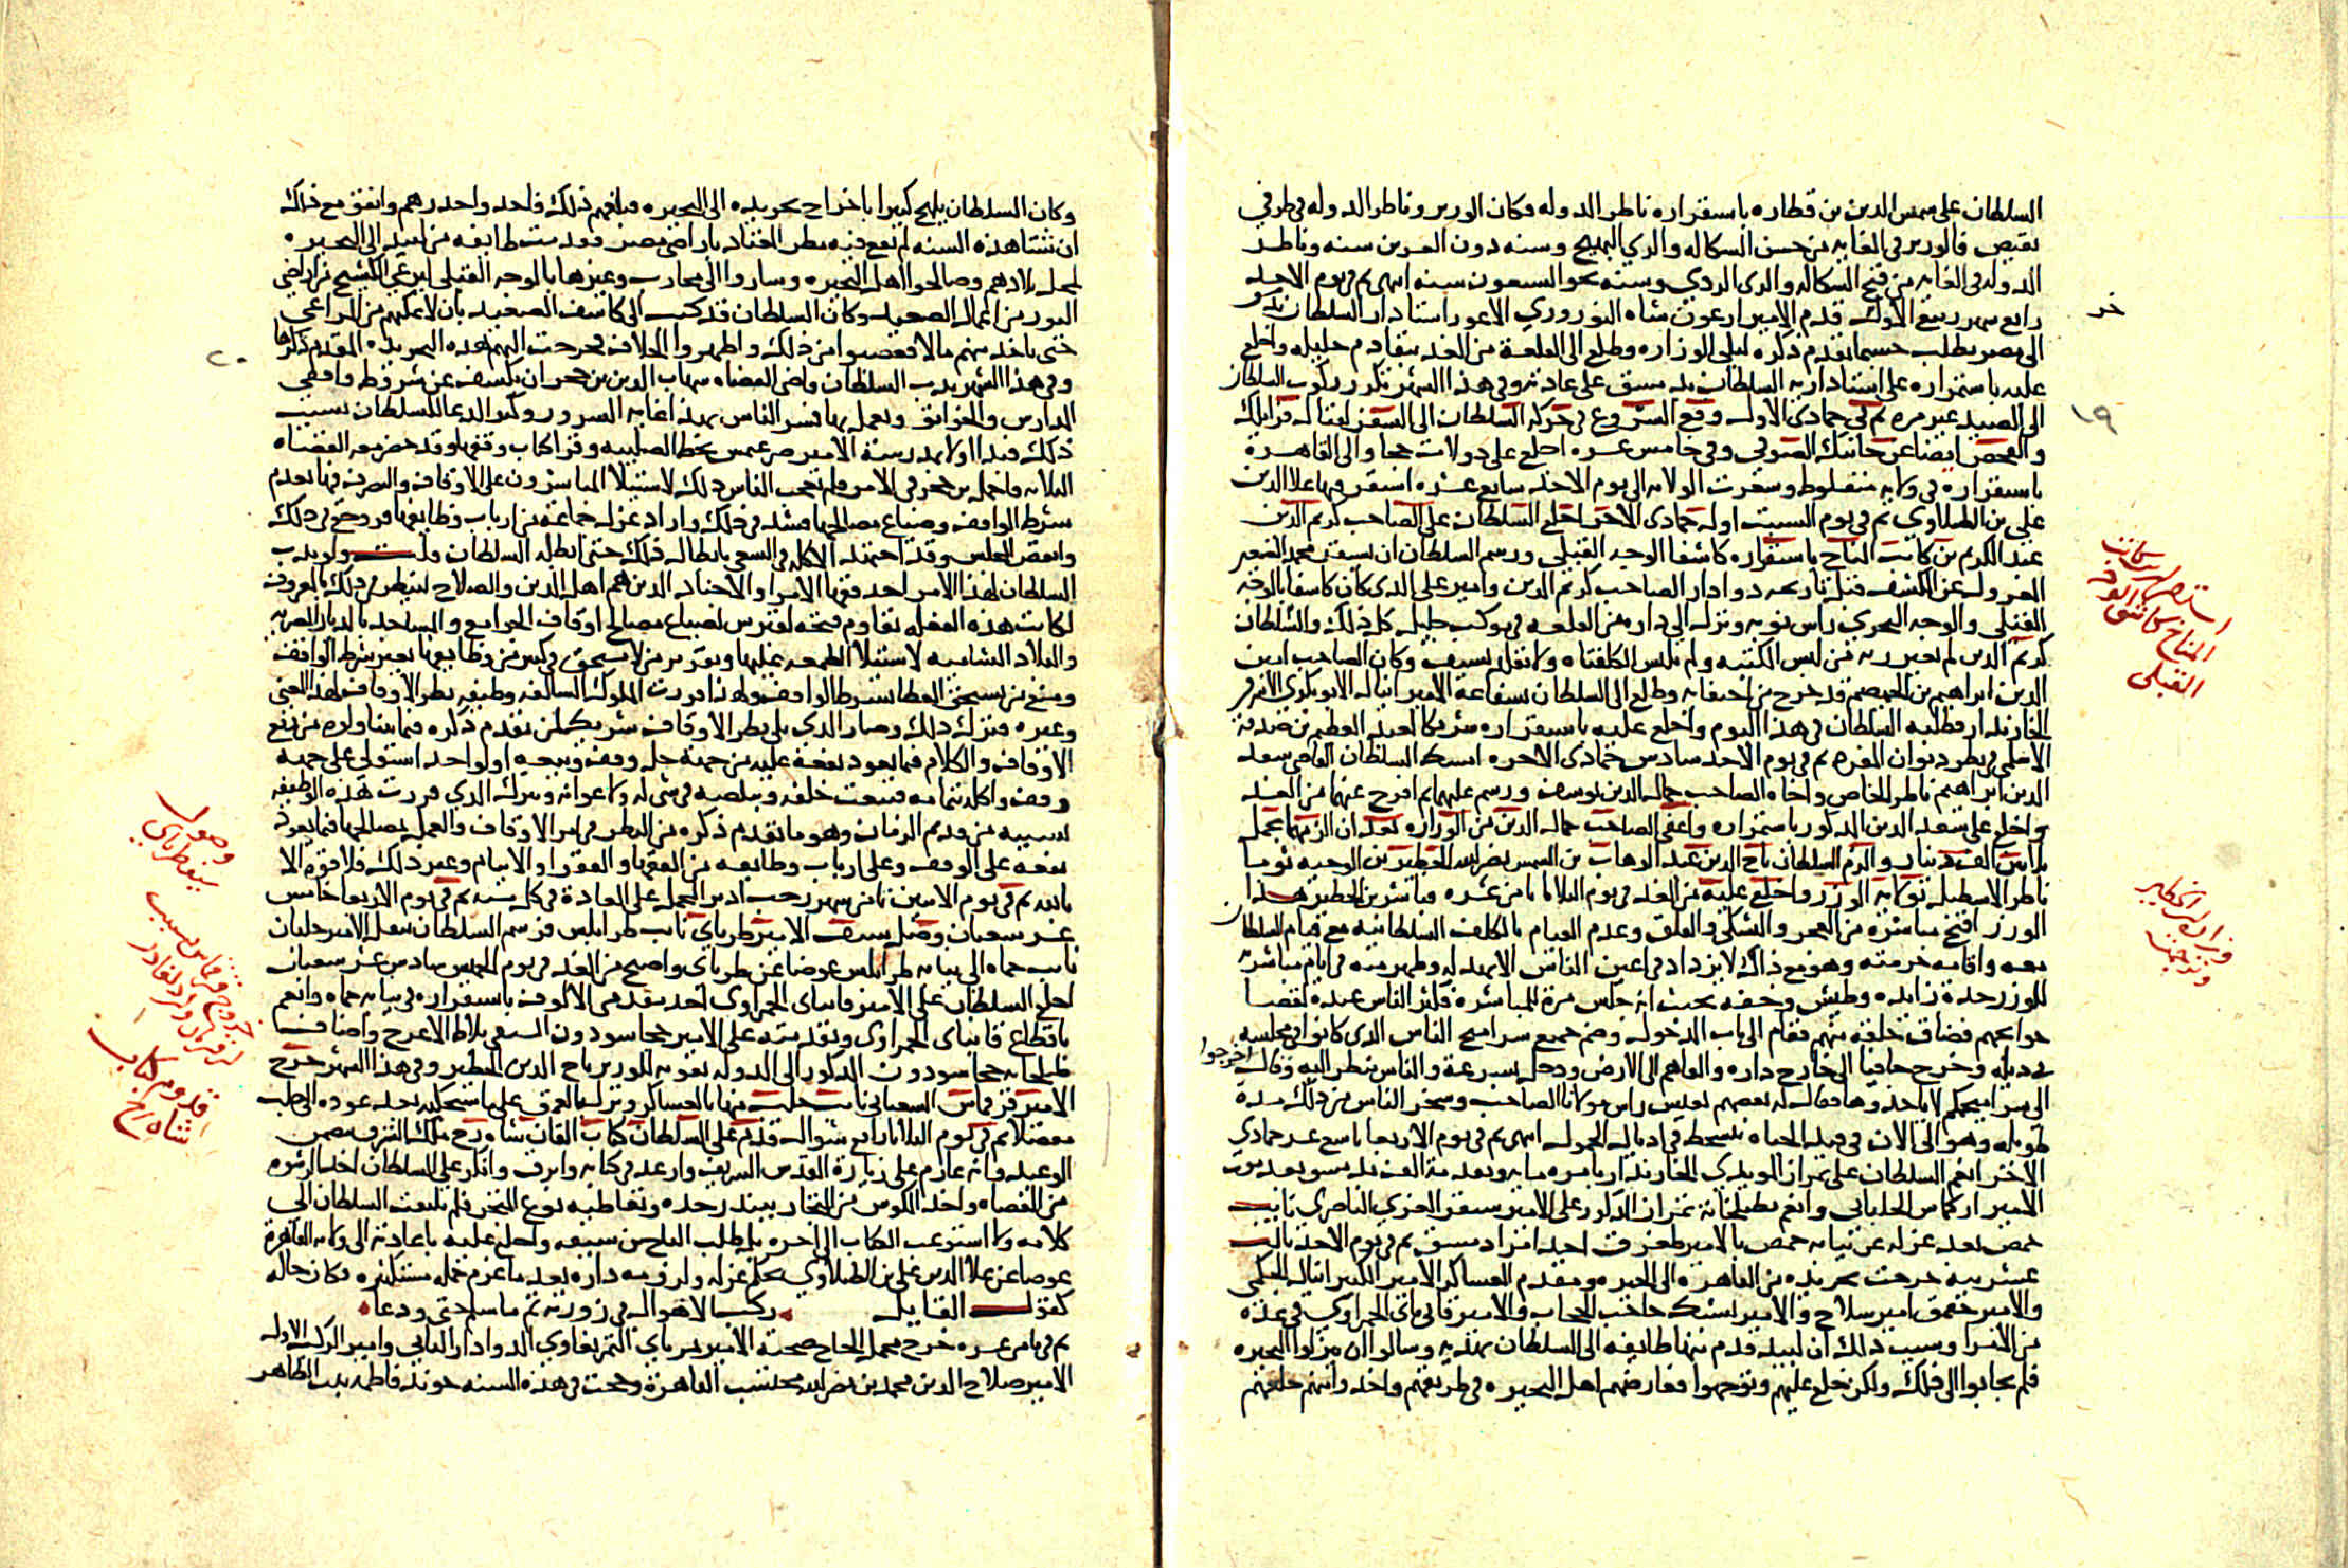 السلطان على شمس الدين بن قطاره باستقراره ناظر الدوله فكان الوزير وناظر الدوله في طرفي
نقيض فالوزير في الغايه من حسن الشكاله والزي البهيج وسنه دون العشرين سنه وناظر
الدوله في الغايه من قبح الشكاله والزي الردي وسنه نحو السبعون سنه انتهى ثم في يوم الاحد
رابع شهر ربيع الاول قدم الامير ارغون شاه النوروزي الاعور استادار السلطان
الى مصر بطلب حسبما تقدم ذكره ليلي الوزاره وطلع الى القلعة من الغد بتقادم جليله واخلع
عليه باستمراره على استاداريه السلطان بدمشق على عادته وفي هذا الشهر تكرر ركوب السلطان
الى الصيد غير مره ثم في جمادى الاول وقع الشروع في حركه السلطان الى السفر لقتال قرايلك
والفحص ايضا عن جانبك الصوفي وفي خامس عشره اخلع على دولات خجا والى القاهرة
باستقراره في ولايه منفلوط وشغرت الولايه الى يوم الاحد سابع عشره استقر فيها علا الدين
علي بن الطبلاوي ثم في يوم السبت اول جمادى الاخر اخلع السلطان على الصاحب كريم الدين
عبد الكريم بن كاتب المناخ باستقراره كاشفا الوجه القبلي ورسم السلطان ان يستقر محمد الصغير
المعزول عن الكشف قبل تاريخه دوادار الصاحب كريم الدين وامير علي الذي كان كاشفا بالوجه
القبلي والوجه البحري راس نوبه ونزل الى داره من القلعه في موكب جليل كل ذلك والسلطان
كريم الدين لم يغير زيه من لبس الكتبه ولم يلبس الكلفتاه ولا تقلد بسيف وكان الصاحب امين
الدين ابراهيم بن الهيصم قد خرج من اختفايه وطلع الى السلطان بشفاعة الامير اينال الابوبكري الاشرفي
الخازندار فطلبه السلطان في هذا اليوم واخلع عليه باستقراره شريكا لعبد العظيم بن صدقة
الاسلمي في نظر ديوان المفرد ثم في يوم الاحد سادس جمادى الاخره امسك السلطان القاضي سعد
الدين ابراهيم ناظر الخاص واخاه الصاحب جمال الدين يوسف ورسم عليهما ثم افرج عنهما من الغد
واخلع على سعد الدين المذكور باستمراره واعفى الصاحب جمال الدين من الوزاره بعد ان الزمهما بحمل
ثلاثين الف دينار والزم السلطان تاج الدين عبد الوهاب بن الشمس نصر الله الخطير بن الوجيه توما
ناظر الاسطبل بولايه الوزر واخلع عليه من الغد في يوم الثلاثا ثامن عشره فباشر بن الخطير هذا
الوزر اقبح مباشره من العجز والتشكي والقلق وعدم القيام بالكلف السلطانيه مع قيام السلطان
معه واقامه حرمته وهو مع ذلك لا يزداد في اعين الناس الا بهدله وظهر منه في ايام مباشرته
للوزر حدة زايده وطيش وخفه بحيث انه جلس مرة للمباشره فكثر الناس عنده لقضا
حوايجهم فضاق خلقه منهم فقام الى باب الدخول وضم جميع سراميج الناس الذي كانوا في مجلسه
في ذيله وخرج حافيا الى خارج داره والقاهم الى الارض ودخل بسرعة والناس تنظر اليه وقال اخرجوا
الى سراميجكم لا ياخذوها فقال له بعضهم تعيش راس مولانا الصاحب وسخر الناس من ذلك مدة
طويله وهو الى الان في قيد الحياه يتسحط في اذيال الخمول انتهى ثم في يوم الاربعا تاسع عشر جمادي
الاخر انعم السلطان على تمراز المويدي الخازندار بامره مايه وتقدمة الف بدمشق بعد موت
الامير اركماس الجلباني وانعم بطبلخانة تمراز المذكور على الامير سنقر العزي الناصري نايب
حمص بعد عزله عن نيابه حمص بالامير طغرق احد امرا دمشق ثم في يوم الاحد ثالث
عشرينه خرجت تجريده من القاهره الى البحيره ومقدم العساكر الامير الكبير اينال الجكمي
والامير جقمق امير سلاح والامير يشبك حاجب الحجاب والامير قاني باي الحمزاوي في عده
من الامرا وسبب ذلك ان لبيد قدم منها طايفه الى السلطان بهديه وسالوا ان ينزلوا البحيره
فلم يجابوا الى ذلك ولكن خلع عليهم وتوجهوا فعارضهم اهل البحيره في طريقهم واخذوا منهم خلعهم
خر
١٩
استقرار كاتب
المناخ كاشف الوجه
القبلي
وزاره بن الخطير
وكان السلطان يلهج كثيرا باخراج تجريده الى البحيره فبلغهم ذلك فاخذوا حذرهم واتفق مع ذلك
ان شتا هذه السنه لم يقع فيه مطر المعتاد باراضي مصر فقدمت طايفه من لبيد الى البحيره
لمحل بلادهم وصالحوا اهل البحيره وساروا الى محارب وغيرها بالوجه القبلي لرعي الكشيح من اراضي
البور من اعمال الصعيد وكان السلطان قد كتب الى كاشف الصعيد بان لا يمكنهم من المراعي
حتى ياخذ منهم مالا فغضبوا من ذلك واظهروا الخلاف فخرجت اليهم هذه التجريده المقدم ذكرها
وفي هذا الشهر ندب السلطان قاضي القضاه شهاب الدين بن حجر ان يكشف عن شروط واقفي
المدارس والخوانق ويعمل بها فسر الناس بهذا غايه السرور وكثر الدعا للسلطان بسبب
ذلك فبدا اولا بمدرسة الامير صرغتمش بخط الصليبه وقرا كتاب وقفها وقد حضر معه القضاه
الثلاثه فاجمل بن حجر في الامر فلم تعجب الناس ذلك لاستيلا المباشرون على الاوقاف والتصرف فيها بعدم
شرط الواقف وضياع مصالحها فشدد في ذلك واراد عزل جماعة من ارباب وظايفها فروجع في ذلك
وانفض المجلس وقد اجتهد الاكابر في السعي بابطال ذلك حتى ابطله السلطان قلت ولو ندب
السلطان لهذا الامر احد فقها الامرا والاجناد الذين هم اهل الدين والصلاح لينظر في ذلك بالمعروف
لكانت هذه الفعله تقاوم فتحه لقبرس لضياع مصالح اوقاف الجوامع والمساجد بالديار المصريه
والبلاد الشاميه لاستيلا الطمعه عليها وتقرير من لا يستحق في كثير من وظايفها بغير شرط الواقف
ومنع من يستحق العطا بشرط الواقف ولهذا قررت الملوك السالفه وظيفه نظر الاوقاف لهذا المعنى
وغيره فترك ذلك وصار الذي يلي نظر الاوقاف شريكا لمن تقدم ذكره فيما يتناولوه من ريع
الاوقاف والكلام فيما يعود نفعه عليه من جهة حل وقف وبيعه او لواحد استولى على جهه
وقف واكله بتمامه فيبعث خلفه ويبلصه في شي له ولاعوانه وينزل الذي قررت هذه الوظيفه
بسببه من قديم الزمان وهو ما تقدم ذكره من النظر في امر الاوقاف والعمل بمصالحها فيما يعود
نفعه على الوقف وعلى ارباب وظايفه من الفقها والفقرا والايتام وغير ذلك فلا قوة الا
بالله ثم في يوم الاثنين ثاني شهر رجب ادير المحمل على العادة في كل سنه ثم في يوم الاربعا خامس
عشر شعبان وصل سيف الامير طرباي نايب طرابلس فرسم السلطان بنقل الامير جلبان
نايب حماه الى نيابه طرابلس عوضا عن طرباي واصبح من الغد في يوم الخميس سادس عشر شعبان
اخلع السلطان على الامير قانباى الحمزاوى احد مقدمي الالوف باستقراره في نيابه حماه وانعم
باقطاع قانباى الحمزاوى وتقدمته على الامير خجا سودون السيفي بلاط الاعرج واضاف
طبلخانه خجا سودون المذكور الى الدوله تقويه للوزير تاج الدين الخطير وفي هذا الشهر خرج
الامير قرقماس الشعباني نايب حلب منها بالعساكر ونزل بالعمق على ما سنحكيه بعد عوده الى حلب
مفصلا ثم في يوم الثلاثا رابع شوال قدم على السلطان كتاب القان شاه رخ ملك الشرق يتضمن
الوعيد وانه عازم على زيارة القدس الشريف وارعد في كتابه وابرق وانكر على السلطان اخذ الرشوه
من القضاه واخذ المكوس من التجار ببندر جده وتعاطيه نوع المتجر فلم يلتفت السلطان الى
كلامه ولا استوعب الكتاب الى اخره بل طلب التاج بن سيفه واخلع عليه باعادته الى ولايه القاهرة
عوضا عن علا الدين علي بن الطبلاوي بحكم عزله ولزومه داره بعد ما غرم جمله مستكثره فكان حاله
كقول القايل ركب الاهوال في زورته ثم ما سلم حتى ودعا
ثم في ثامن عشره خرج محمل الحاج صحبة الامير تمرباي التمربغاوي الدوادار الثاني وامير الركب الاول
الامير صلاح الدين محمد بن نصر الله محتسب القاهرة وحجت في هذه السنه خوند فاطمه بنت الظاهر
٢٠
وصول
سيف طرباي
خروج قرقماس بسبب
قدوم كتاب
شاه رخ